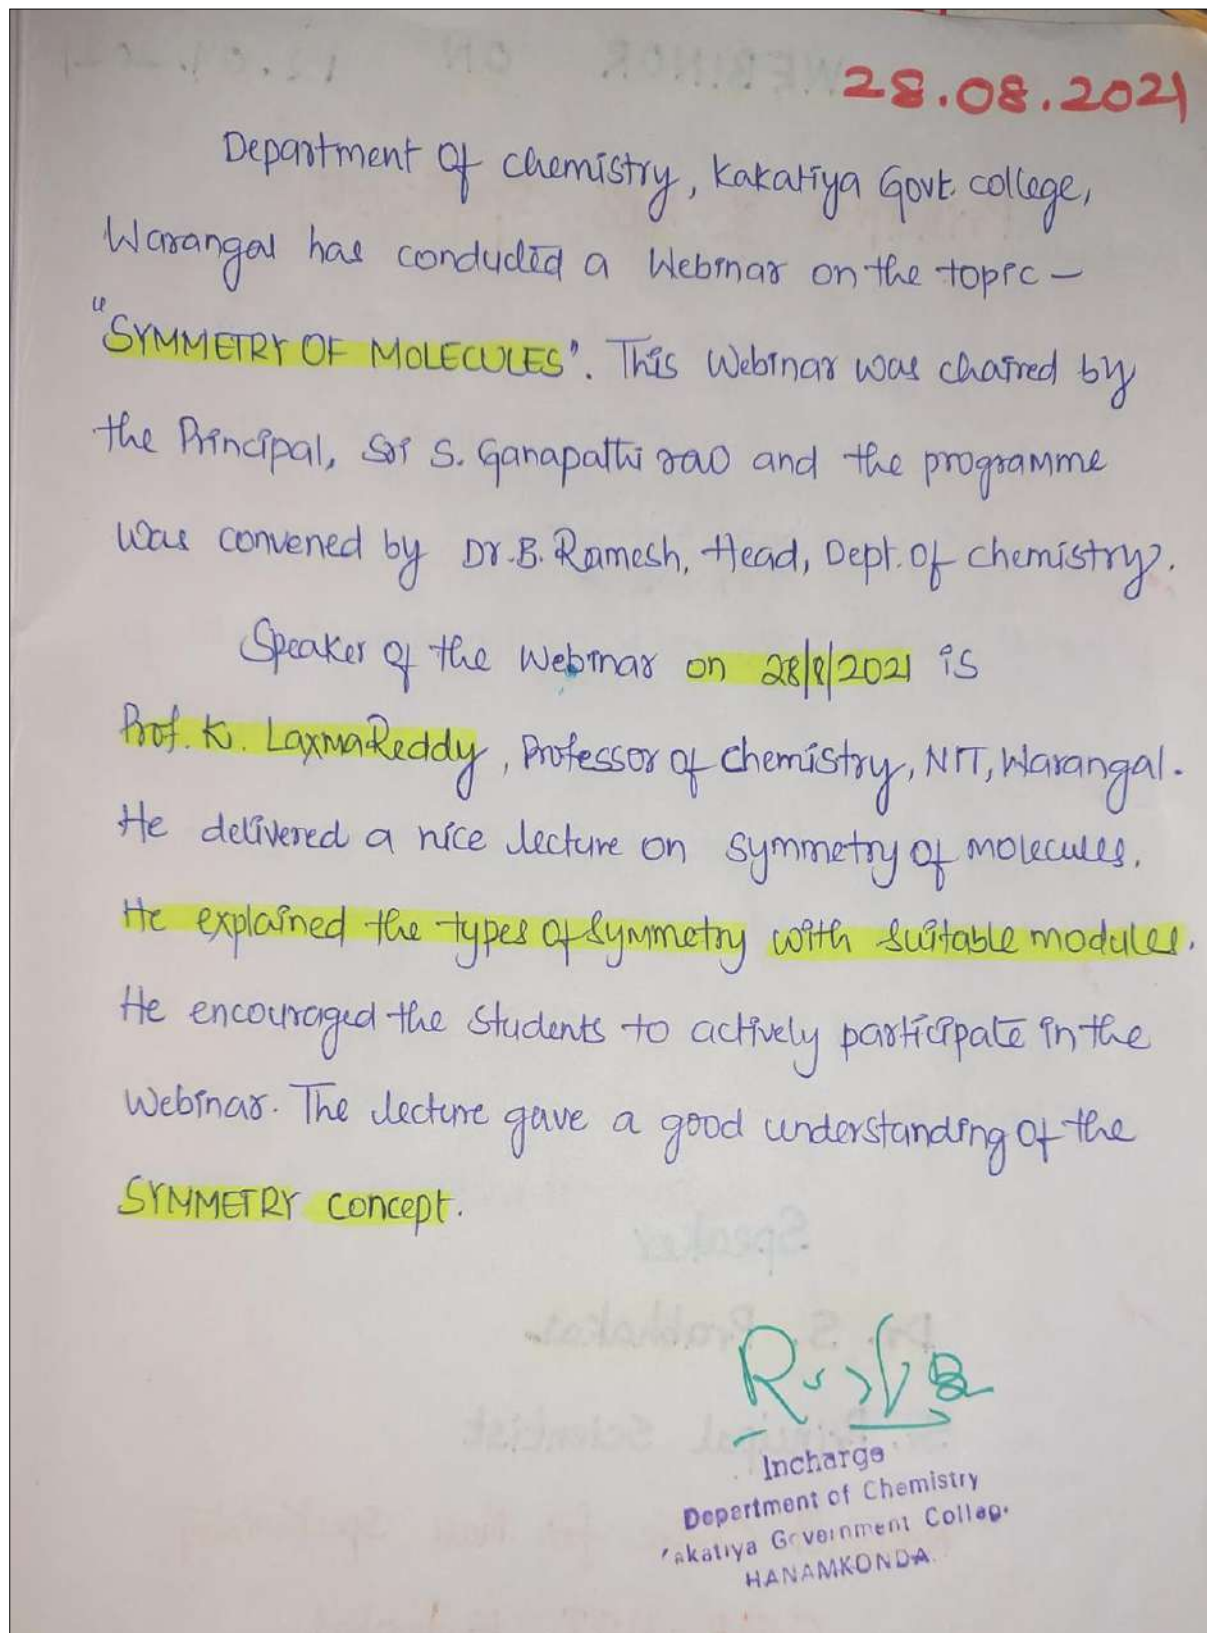 28.08.2021
Department of chemistry, Kakatiya Govt. college,
Warangal has conducted a Webinar on the topic –
"SYMMETRY OF MOLECULES". This Webinar was chaired by
the Principal, Sri S. Ganapathi rao and the programme
was convened by Dr. B. Ramesh, Head, Dept. of chemistry.
Speaker of the Webinar on 28/8/2021 is
Prof. K. LaxmaReddy, Professor of chemistry, NIT, Warangal.
He delivered a nice lecture on symmetry of molecules.
He explained the types of symmetry with suitable modules.
He encouraged the students to actively participate in the
Webinar. The lecture gave a good understanding of the
SYMMETRY concept.
Incharge
Department of Chemistry
Kakatiya Government College
HANAMKONDA.